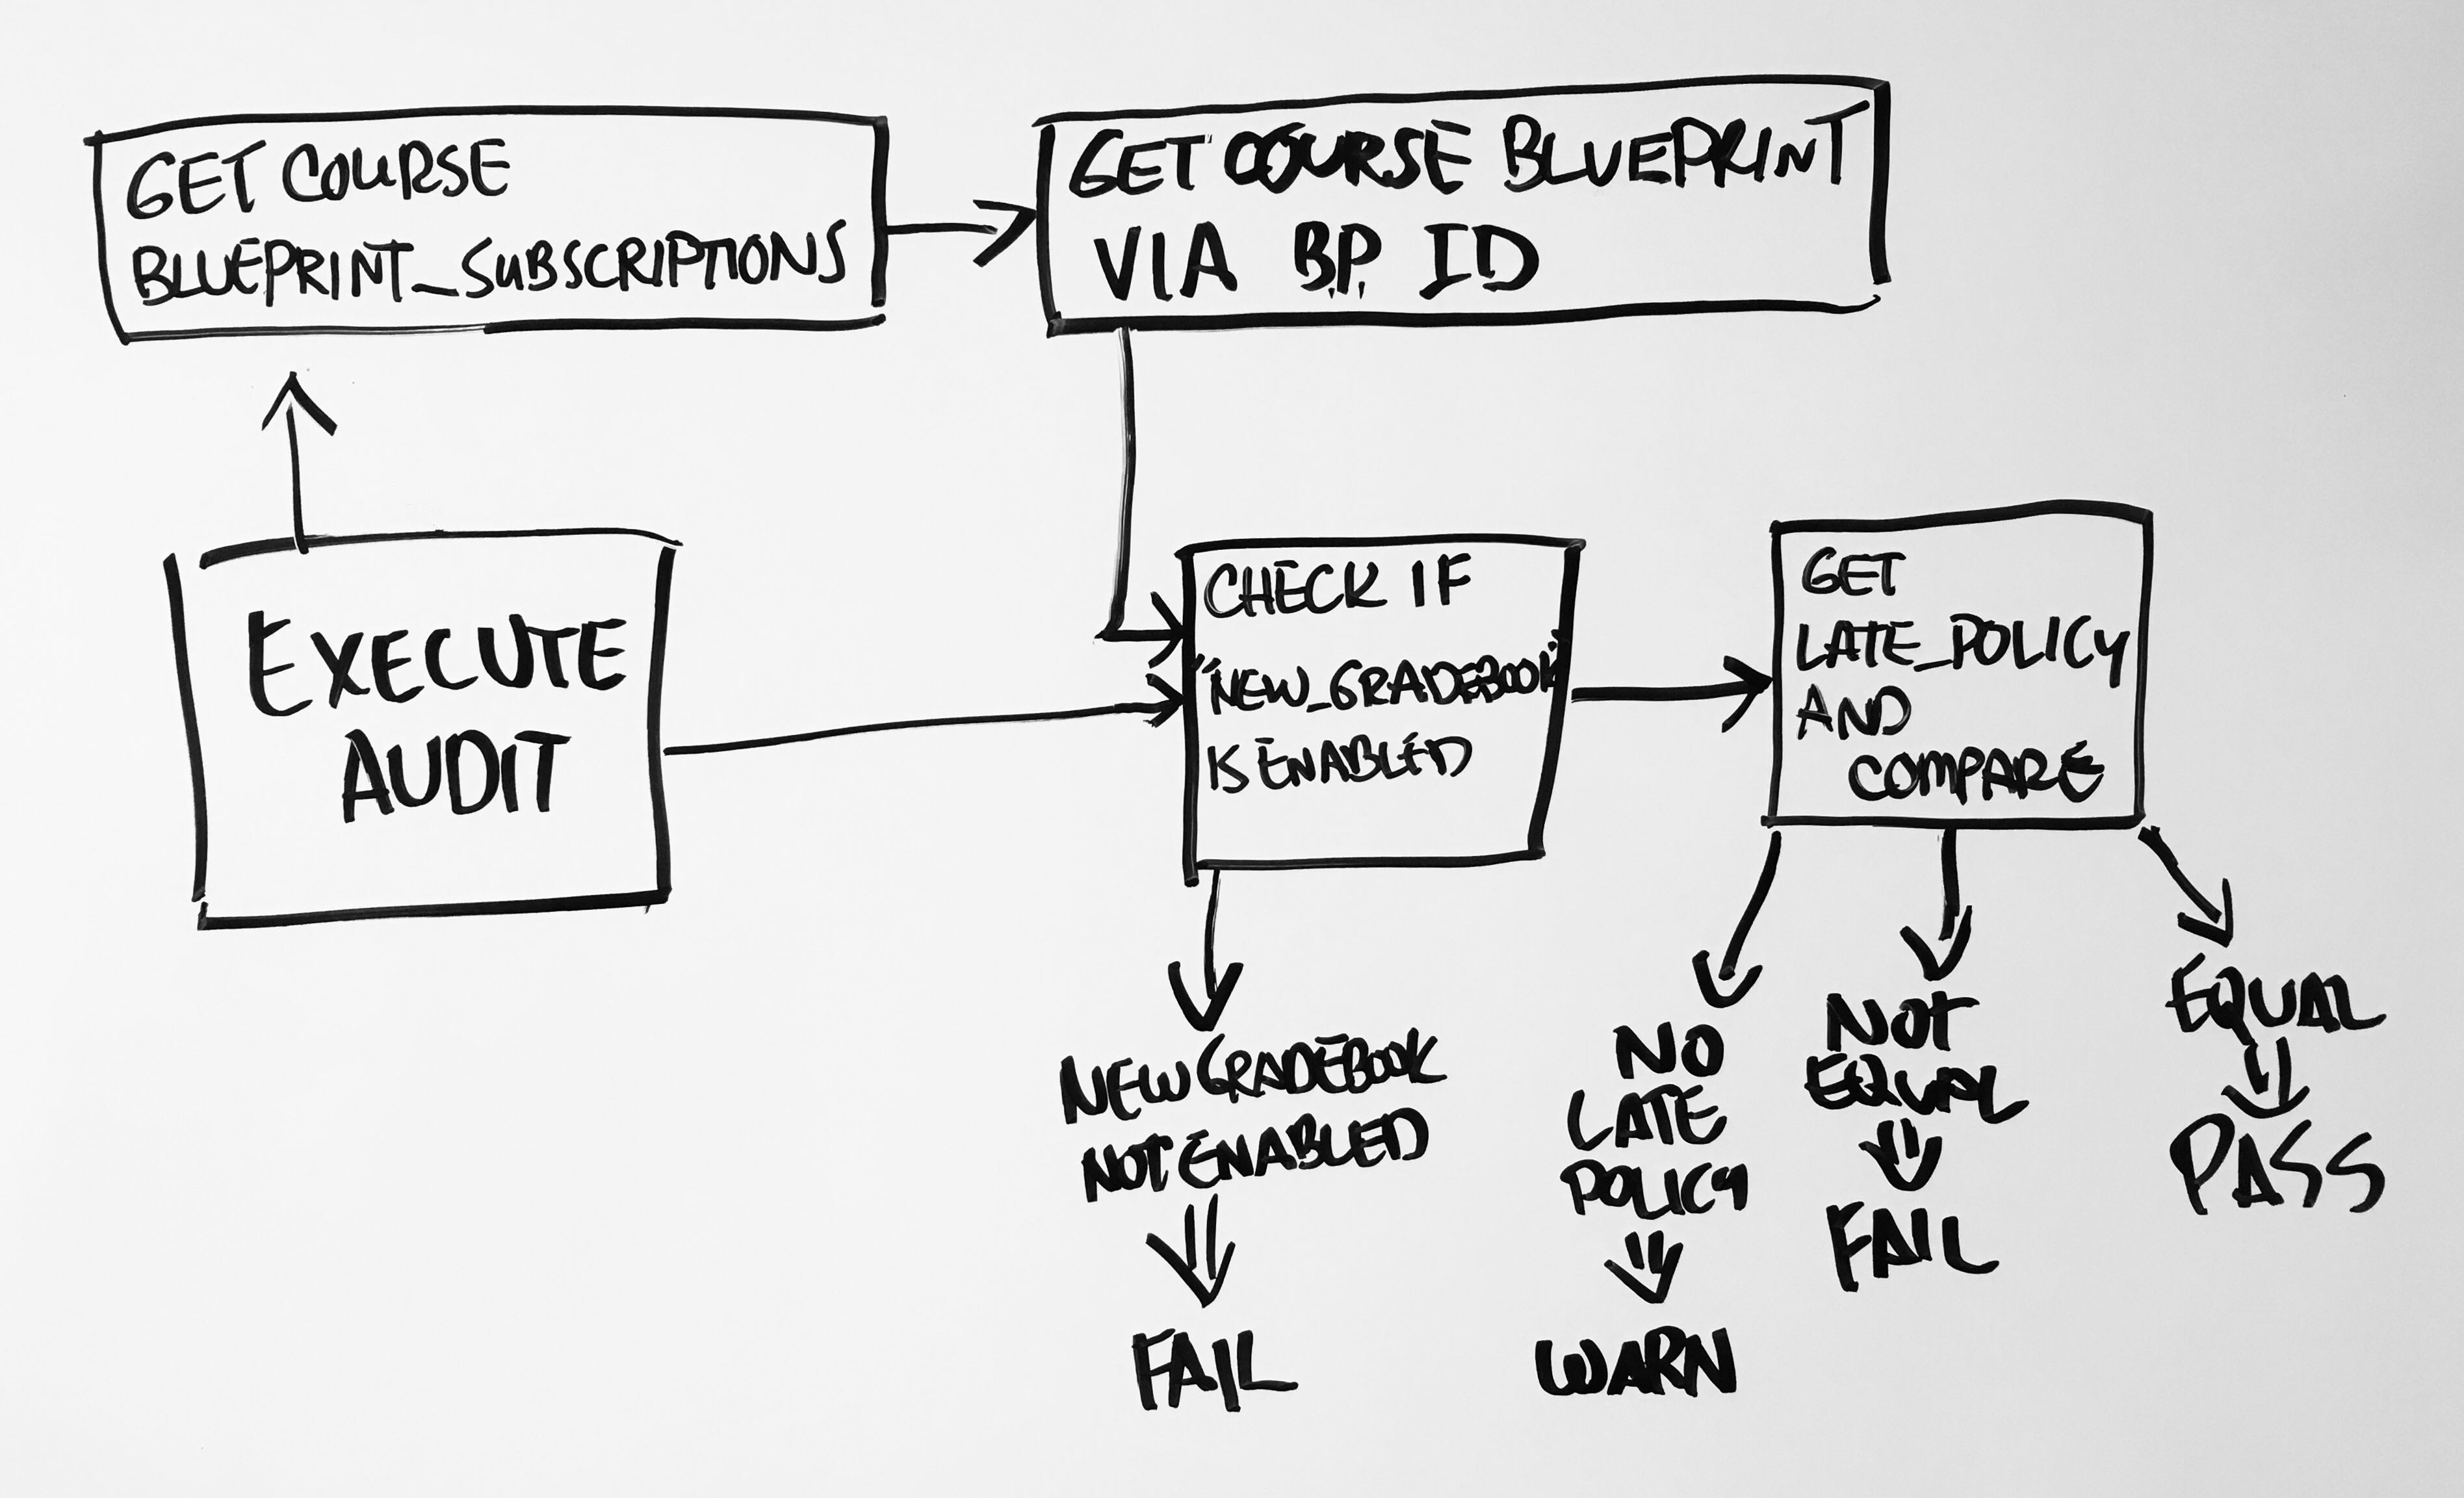 GET COURSE
BLUEPRINT_SUBSCRIPTIONS
GET COURSE BLUEPRINT
VIA B.P. ID
EXECUTE
AUDIT
CHECK IF
"NEW_GRADEBOOK"
IS ENABLED
GET
LATE_POLICY
AND
COMPARE
NEW GRADEBOOK
NOT ENABLED
FAIL
NO
LATE
POLICY
WARN
NOT
EQUAL
FAIL
EQUAL
PASS